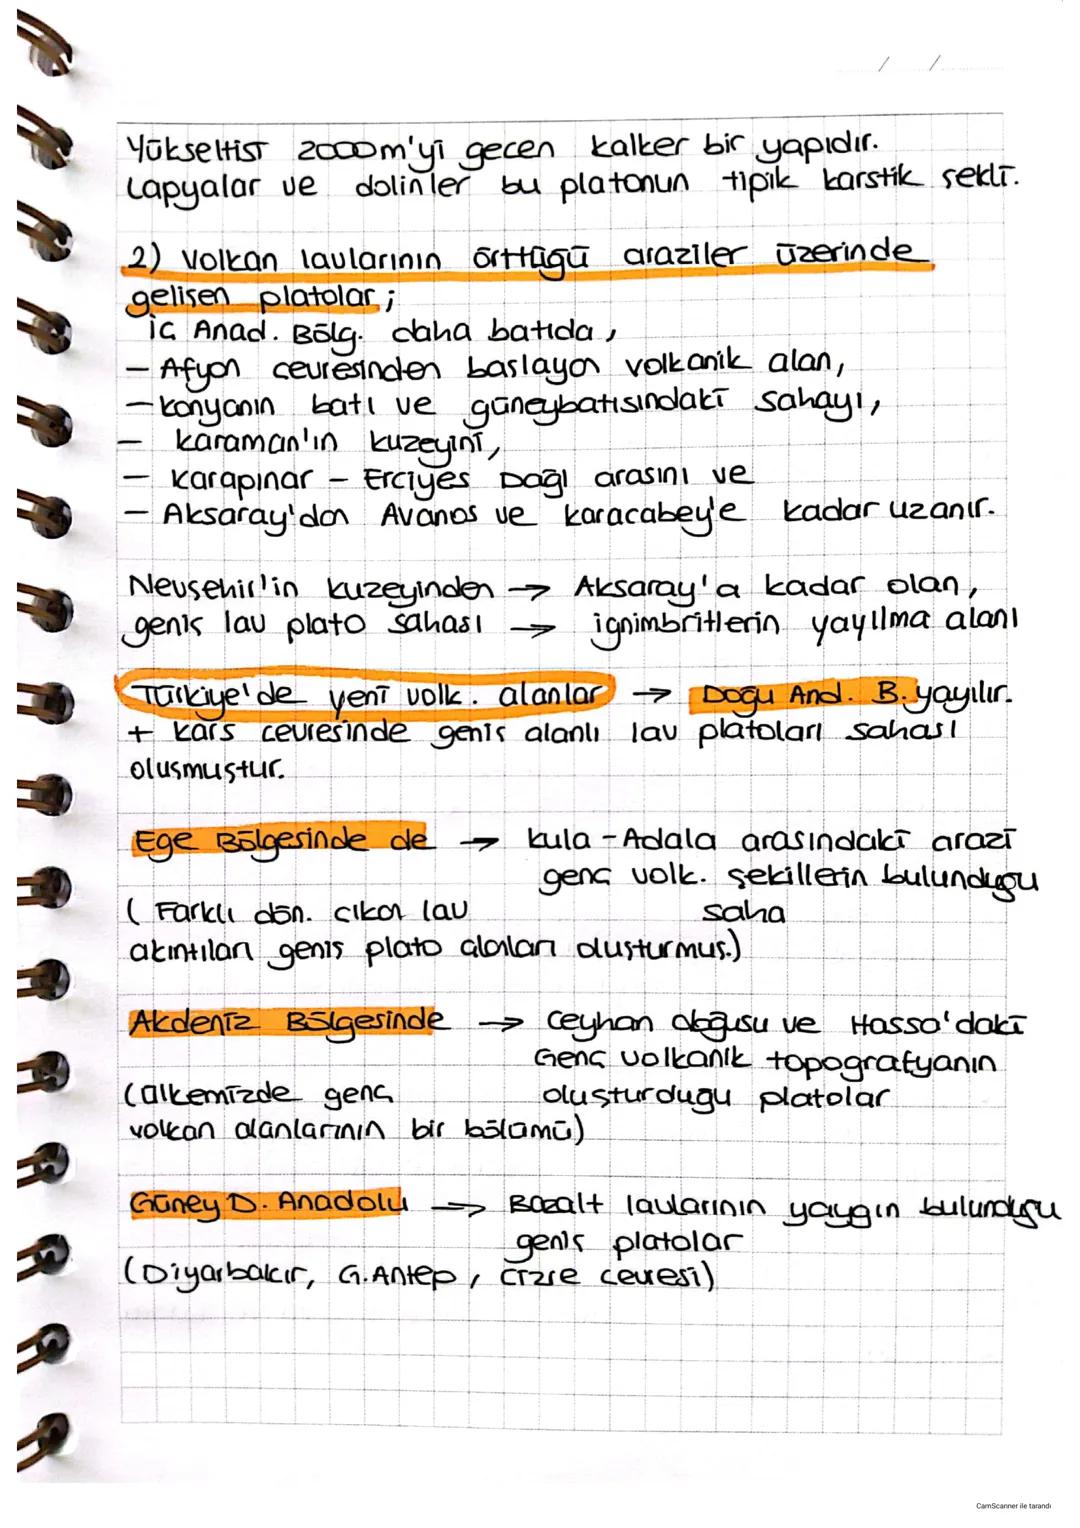 / /
Yükseltisi 2000m'yi geçen kalker bir yapıdır.
Lapyalar ve dolinler bu platonun tipik karstik şekli.
2) Volkan lavlarının örttüğü araziler üzerinde
gelişen platolar;
İç Anad. Bölg. daha batıda,
- Afyon çevresinden başlayan volkanik alan,
- Konyanın batı ve güneybatısındaki sahayı,
- Karaman'ın kuzeyini,
- Karapınar - Erciyes Dağı arasını ve
- Aksaray'dan Avanos ve Karacabey'e kadar uzanır.
Nevşehir'in kuzeyinden → Aksaray'a kadar olan,
geniş lav plato sahası → ignimbritlerin yayılma alanı
Türkiye'de yeni volk. alanlar → Doğu And. B. yayılır.
+ Kars çevresinde geniş alanlı lav platoları sahası
oluşmuştur.
Ege Bölgesinde de → Kula - Adala arasındaki arazi
genç volk. şekillerin bulunduğu
( Farklı dön. çıkan lav saha
akıntıları geniş plato alanları oluşturmuş.)
Akdeniz Bölgesinde → Ceyhan doğusu ve Hassa'daki
Genç volkanik topografyanın
(ülkemizde genç oluşturduğu platolar
volkan alanlarının bir bölümü)
Güney D. Anadolu → Bazalt lavlarının yaygın bulunduğu
geniş platolar
(Diyarbakır, G.Antep, Cizre çevresi)
CamScanner ile tarandı